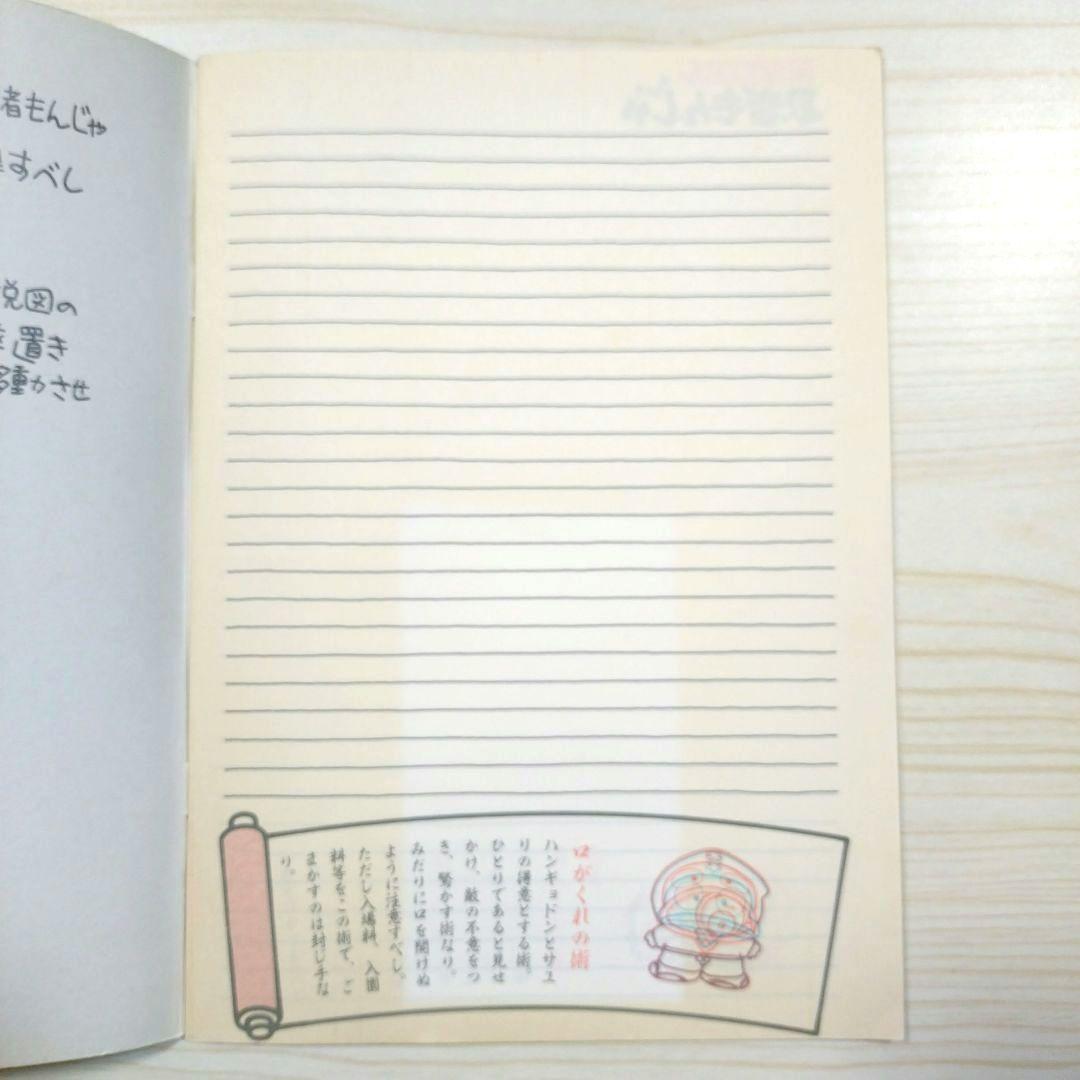 者もんじゃ
すべし
図の
置き
動させ
口がくれの術
ハンギョドンとサユ
リの得意とする術。
ひとりであると見せ
かけ、敵の不意をつ
き、驚かす術なり。
みだりに口を開けぬ
ように注意すべし。
ただし入場料、入園
料等をこの術で、ご
まかすのは封じ手な
り。